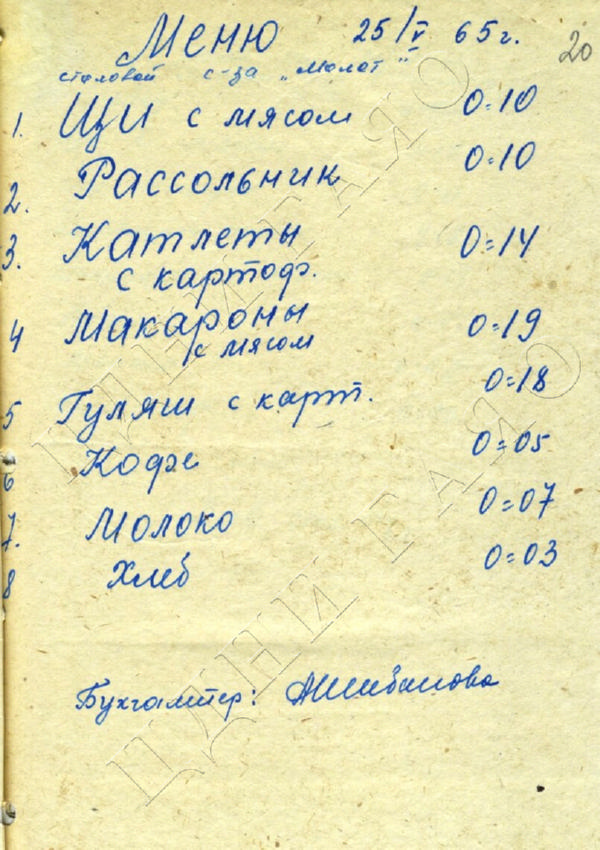 Меню 25/V 65г. 20
столовой с-за „Молот"
1. Щи с мясом 0=10
2. Рассольник 0=10
3. Катлеты 0=14
с картоф.
4 Макароны 0=19
с мясом
5 Гуляш с карт. 0=18
6 Кофе 0=05
7. Молоко 0=07
8 Хлеб 0=03
Бухгалтер: АШибанова
ЦДНИ ГАЯО
ЦДНИ ГАЯО